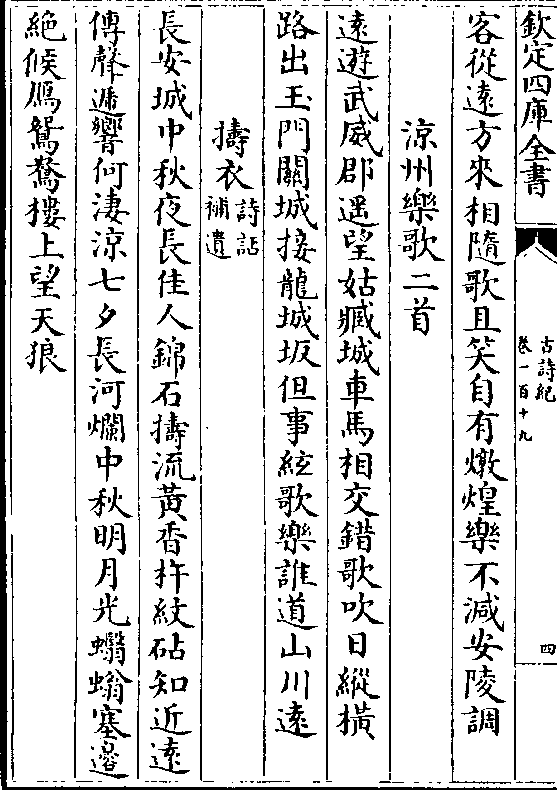 欽定四庫全書
古詩紀
卷一百十九
四
客從遠方來相隨歌且笑自有燉煌樂不減安陵調
涼州樂歌二首
遠遊武威郡遥望姑臧城車馬相交錯歌吹日縱横
路出玉門關城接龍城坂但事絃歌樂誰道山川遠
擣衣詩話補遺
長安城中秋夜長佳人錦石擣流黄香杵紋砧知近遠
傳聲遞響何淒涼七夕長河爛中秋明月光蠮螉塞邉
絶候鴈鴛鴦樓上望天狼